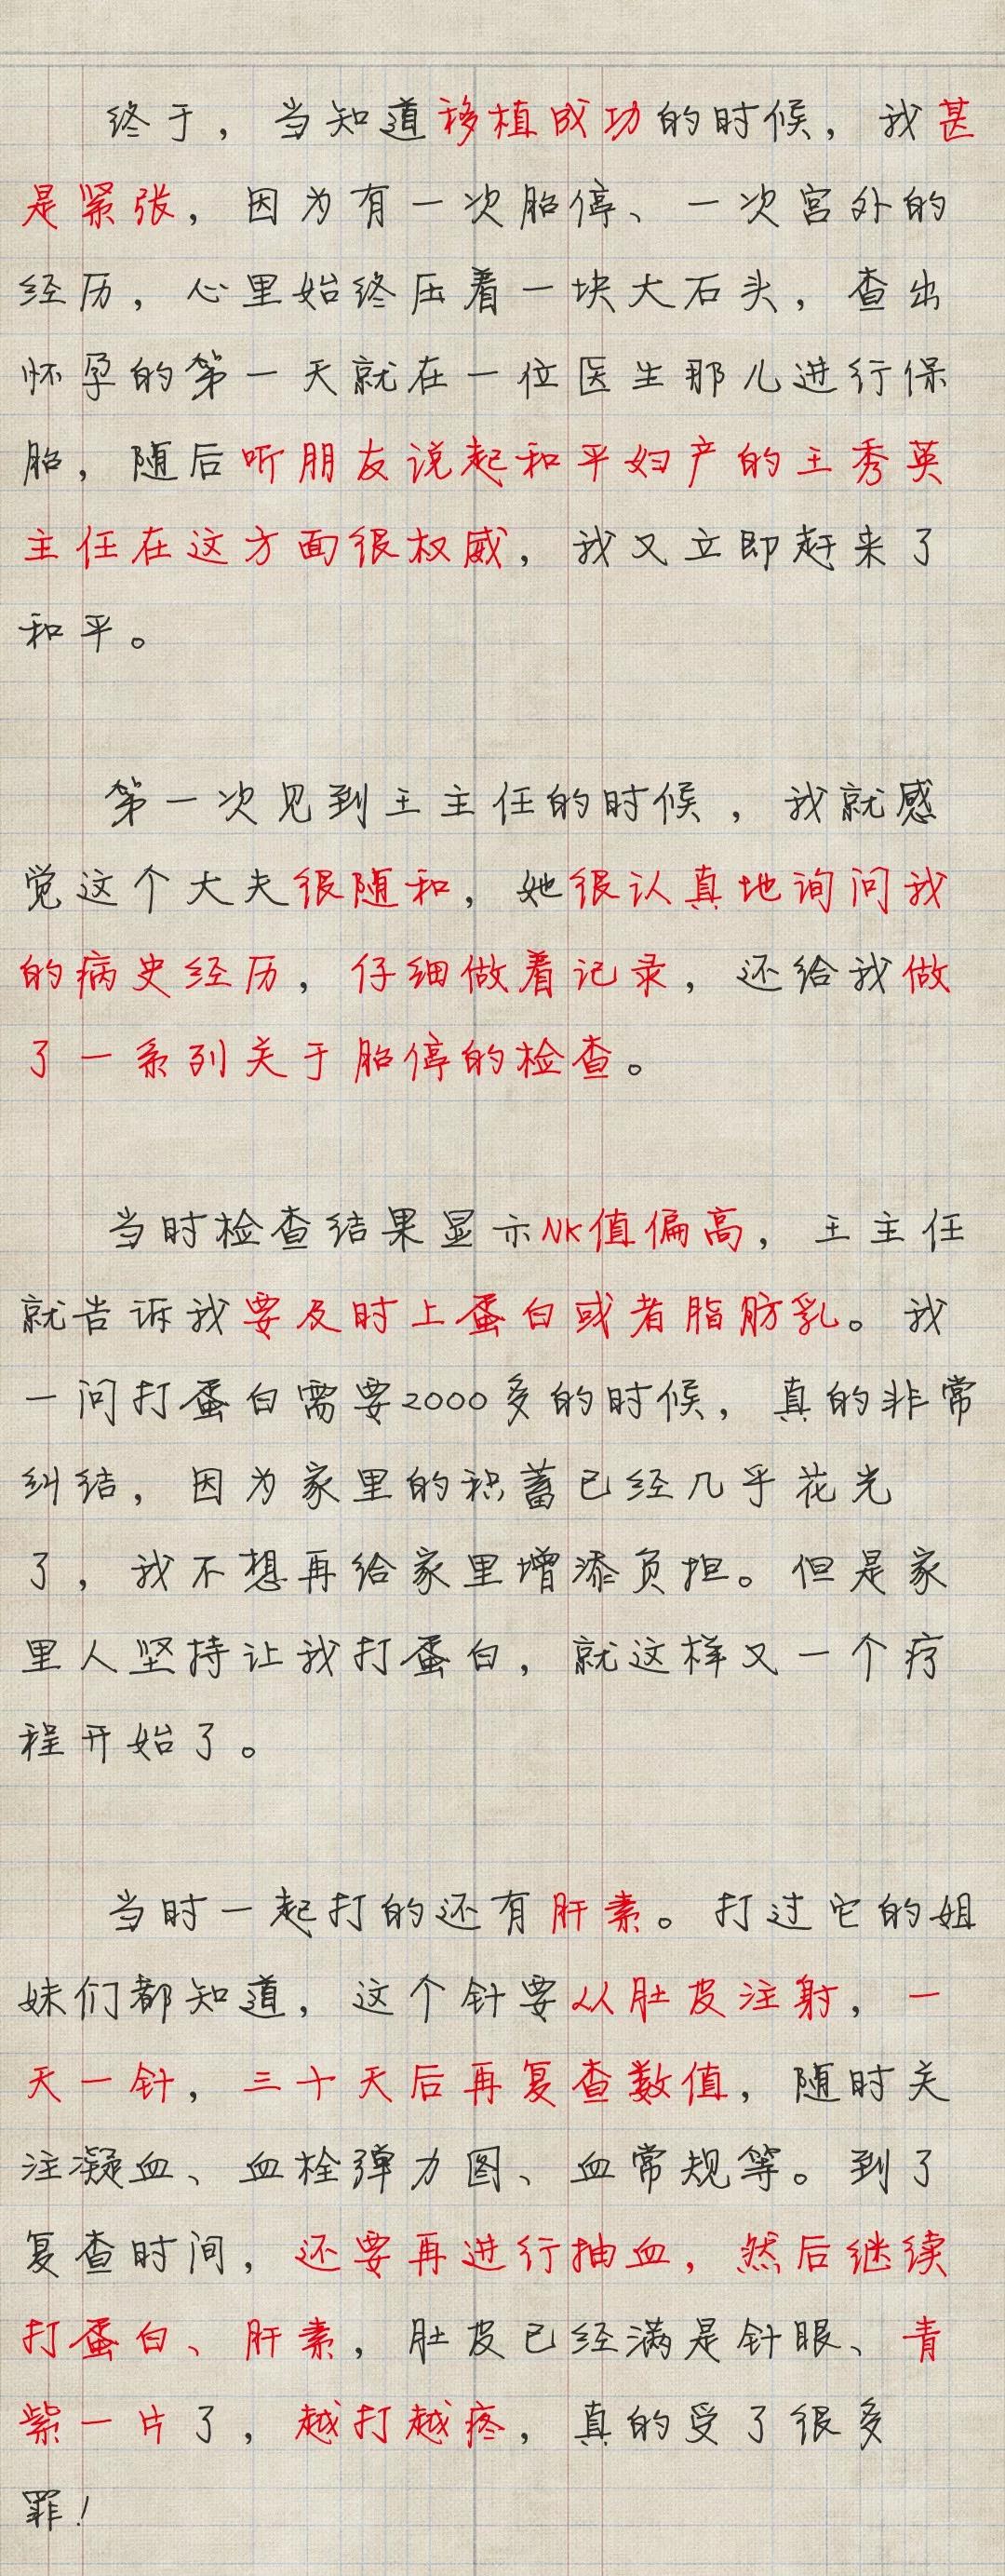 终于，当知道移植成功的时候，我甚
是紧张，因为有一次胎停、一次宫外的
经历，心里始终压着一块大石头，查出
怀孕的第一天就在一位医生那儿进行保
胎，随后听朋友说起和平妇产的王秀英
主任在这方面很权威，我又立即赶来了
和平。
第一次见到王主任的时候，我就感
觉这个大夫很随和，她很认真地询问我
的病史经历，仔细做着记录，还给我做
了一系列关于胎停的检查。
当时检查结果显示NK值偏高，王主任
就告诉我要及时上蛋白或者脂肪乳。我
一问打蛋白需要2000多的时候，真的非常
纠结，因为家里的积蓄已经几乎花光
了，我不想再给家里增添负担。但是家
里人坚持让我打蛋白，就这样又一个疗
程开始了。
当时一起打的还有肝素。打过它的姐
妹们都知道，这个针要从肚皮注射，一
天一针，三十天后再复查数值，随时关
注凝血、血栓弹力图、血常规等。到了
复查时间，还要再进行抽血，然后继续
打蛋白、肝素，肚皮已经满是针眼、青
紫一片了，越打越疼，真的受了很多
罪！